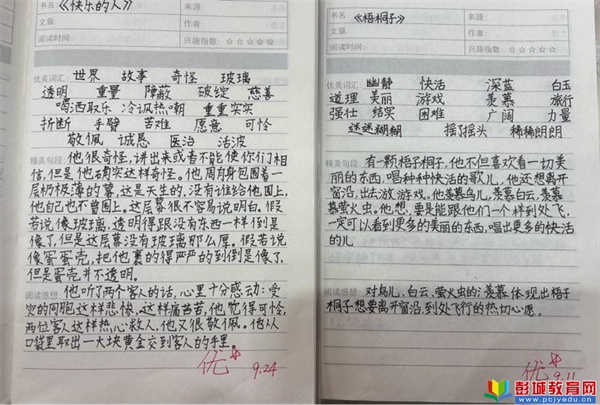 书名 《快乐的人》
来源
文章
作者
阅读时间
兴趣指数 ☆☆☆☆☆
优美词汇 世界 故事 奇怪 玻璃
透明 重量 障蔽 破绽 慈善
喝酒取乐 冷讽热嘲 重重实实
折断 手臂 苦难 愿意 可怜
敬佩 诚恳 医治 活波
精美句段 他很奇怪,讲出来或者不能使你们相
信,但是他确实这样奇怪。他周身包围着一
层极薄的幕,这是天生的,没有谁给他围上,
他自己也不曾围上。这层幕很不容易说明白。假
若说像玻璃,透明得跟没有东西一样倒是
像了,但是这层幕没有玻璃那么厚。假若说
像蛋壳,把他裹的得严严的到倒是像了,
但是蛋壳并不透明。
阅读感想 他听了两个客人的话,心里十分感动:受
灾的同胞这样悲惨,这样痛苦,他觉得可怜,
两位客人这样热心救人,他又很敬佩。他从
口袋里取出一大块黄金交到客人的手里。
优
9.24
书名 《梧桐子》
来源
文章
作者
阅读时间
兴趣指数 ☆☆☆☆☆
优美词汇 幽静 快活 深蓝 白玉
道理 美丽 游戏 羡慕 旅行
强壮 结实 困难 广阔 力量
迷迷糊糊 摇了摇头 稀稀朗朗
精美句段 有一颗梧子桐子,他不但喜欢看一切美
丽的东西,唱种种快活的歌儿,他还想离开
窗沿,出去放游戏。他羡慕鸟儿,羡慕白云,羡
慕萤火虫。他想,要是能跟他们一个样到处飞,
一定可以看到更多的美丽的东西,唱出更多的快活
的儿
阅读感想 对鸟儿、白云、萤火虫的羡慕体现出梧子
桐子想要离开窗沿,到处飞行的热切心愿。
优
9.11
彭城教育网
www.pcjyedu.com